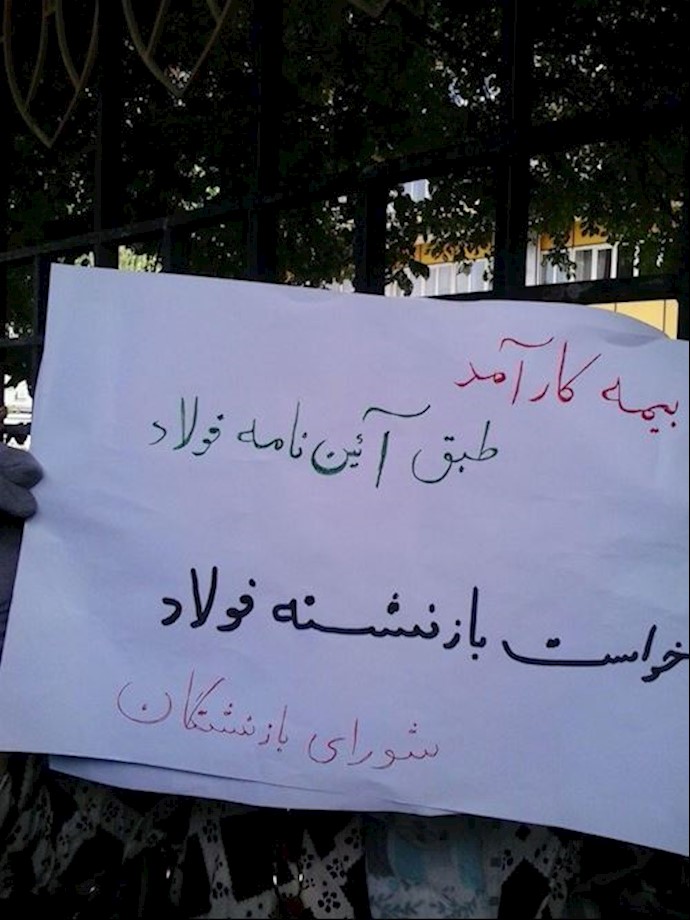 بیمه کارآمد
طبق آئین نامه فولاد
خواست بازنشسته فولاد
شورای بازنشتگان